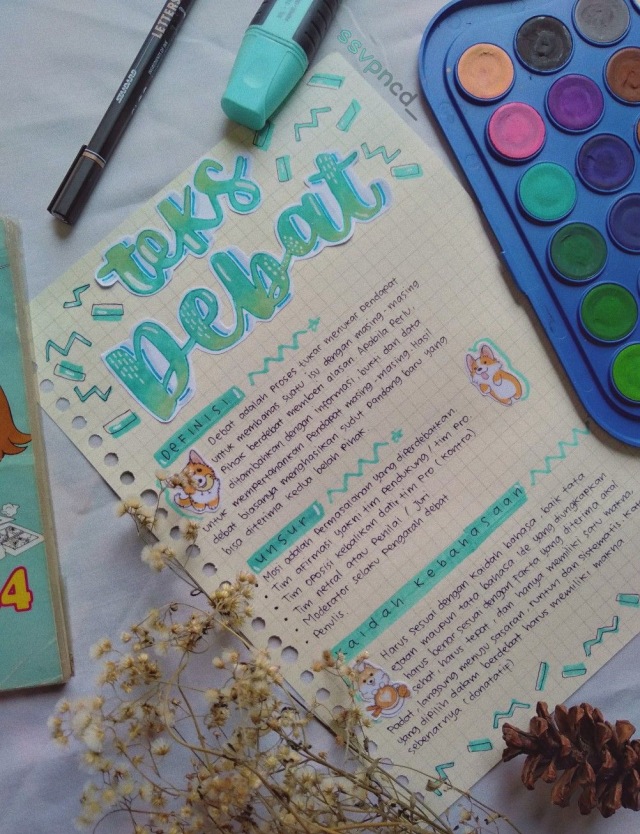 ssvpncd_
LETTERS
SENDARS
teks
Debat
DEFINISI
Debat adalah proses tukar menukar pendapat
untuk membahas suatu isu dengan masing-masing
pihak berdebat memberi alasan. Apabila perlu,
ditambahkan dengan informasi, bukti dan data
untuk mempertahankan pendapat masing-masing. Hasil
debat biasanya menghasilkan sudut pandang baru yang
bisa diterima kedua belah pihak.
unsur
Mosi adalah permasalahan yang diperdebatkan.
Tim afirmasi yakni tim pendukung / tim pro.
Tim oposisi kebalikan dari tim pro (kontra)
Tim netral atau penilai (juri)
Moderator selaku pengarah debat
Penulis.
kaidah kebahasaan
Harus sesuai dengan kaidah bahasa, baik tata
ejaan maupun tata bahasa. Ide yang diungkapkan
harus benar sesuai dengan fakta yang diterima akal
sehat, harus tepat, dan hanya memiliki satu makna,
Padat, langsung menuju sasaran, runtun dan sistematis. Kata
yang dipilih dalam berdebat harus memiliki makna
sebenarnya (donatatif)
4